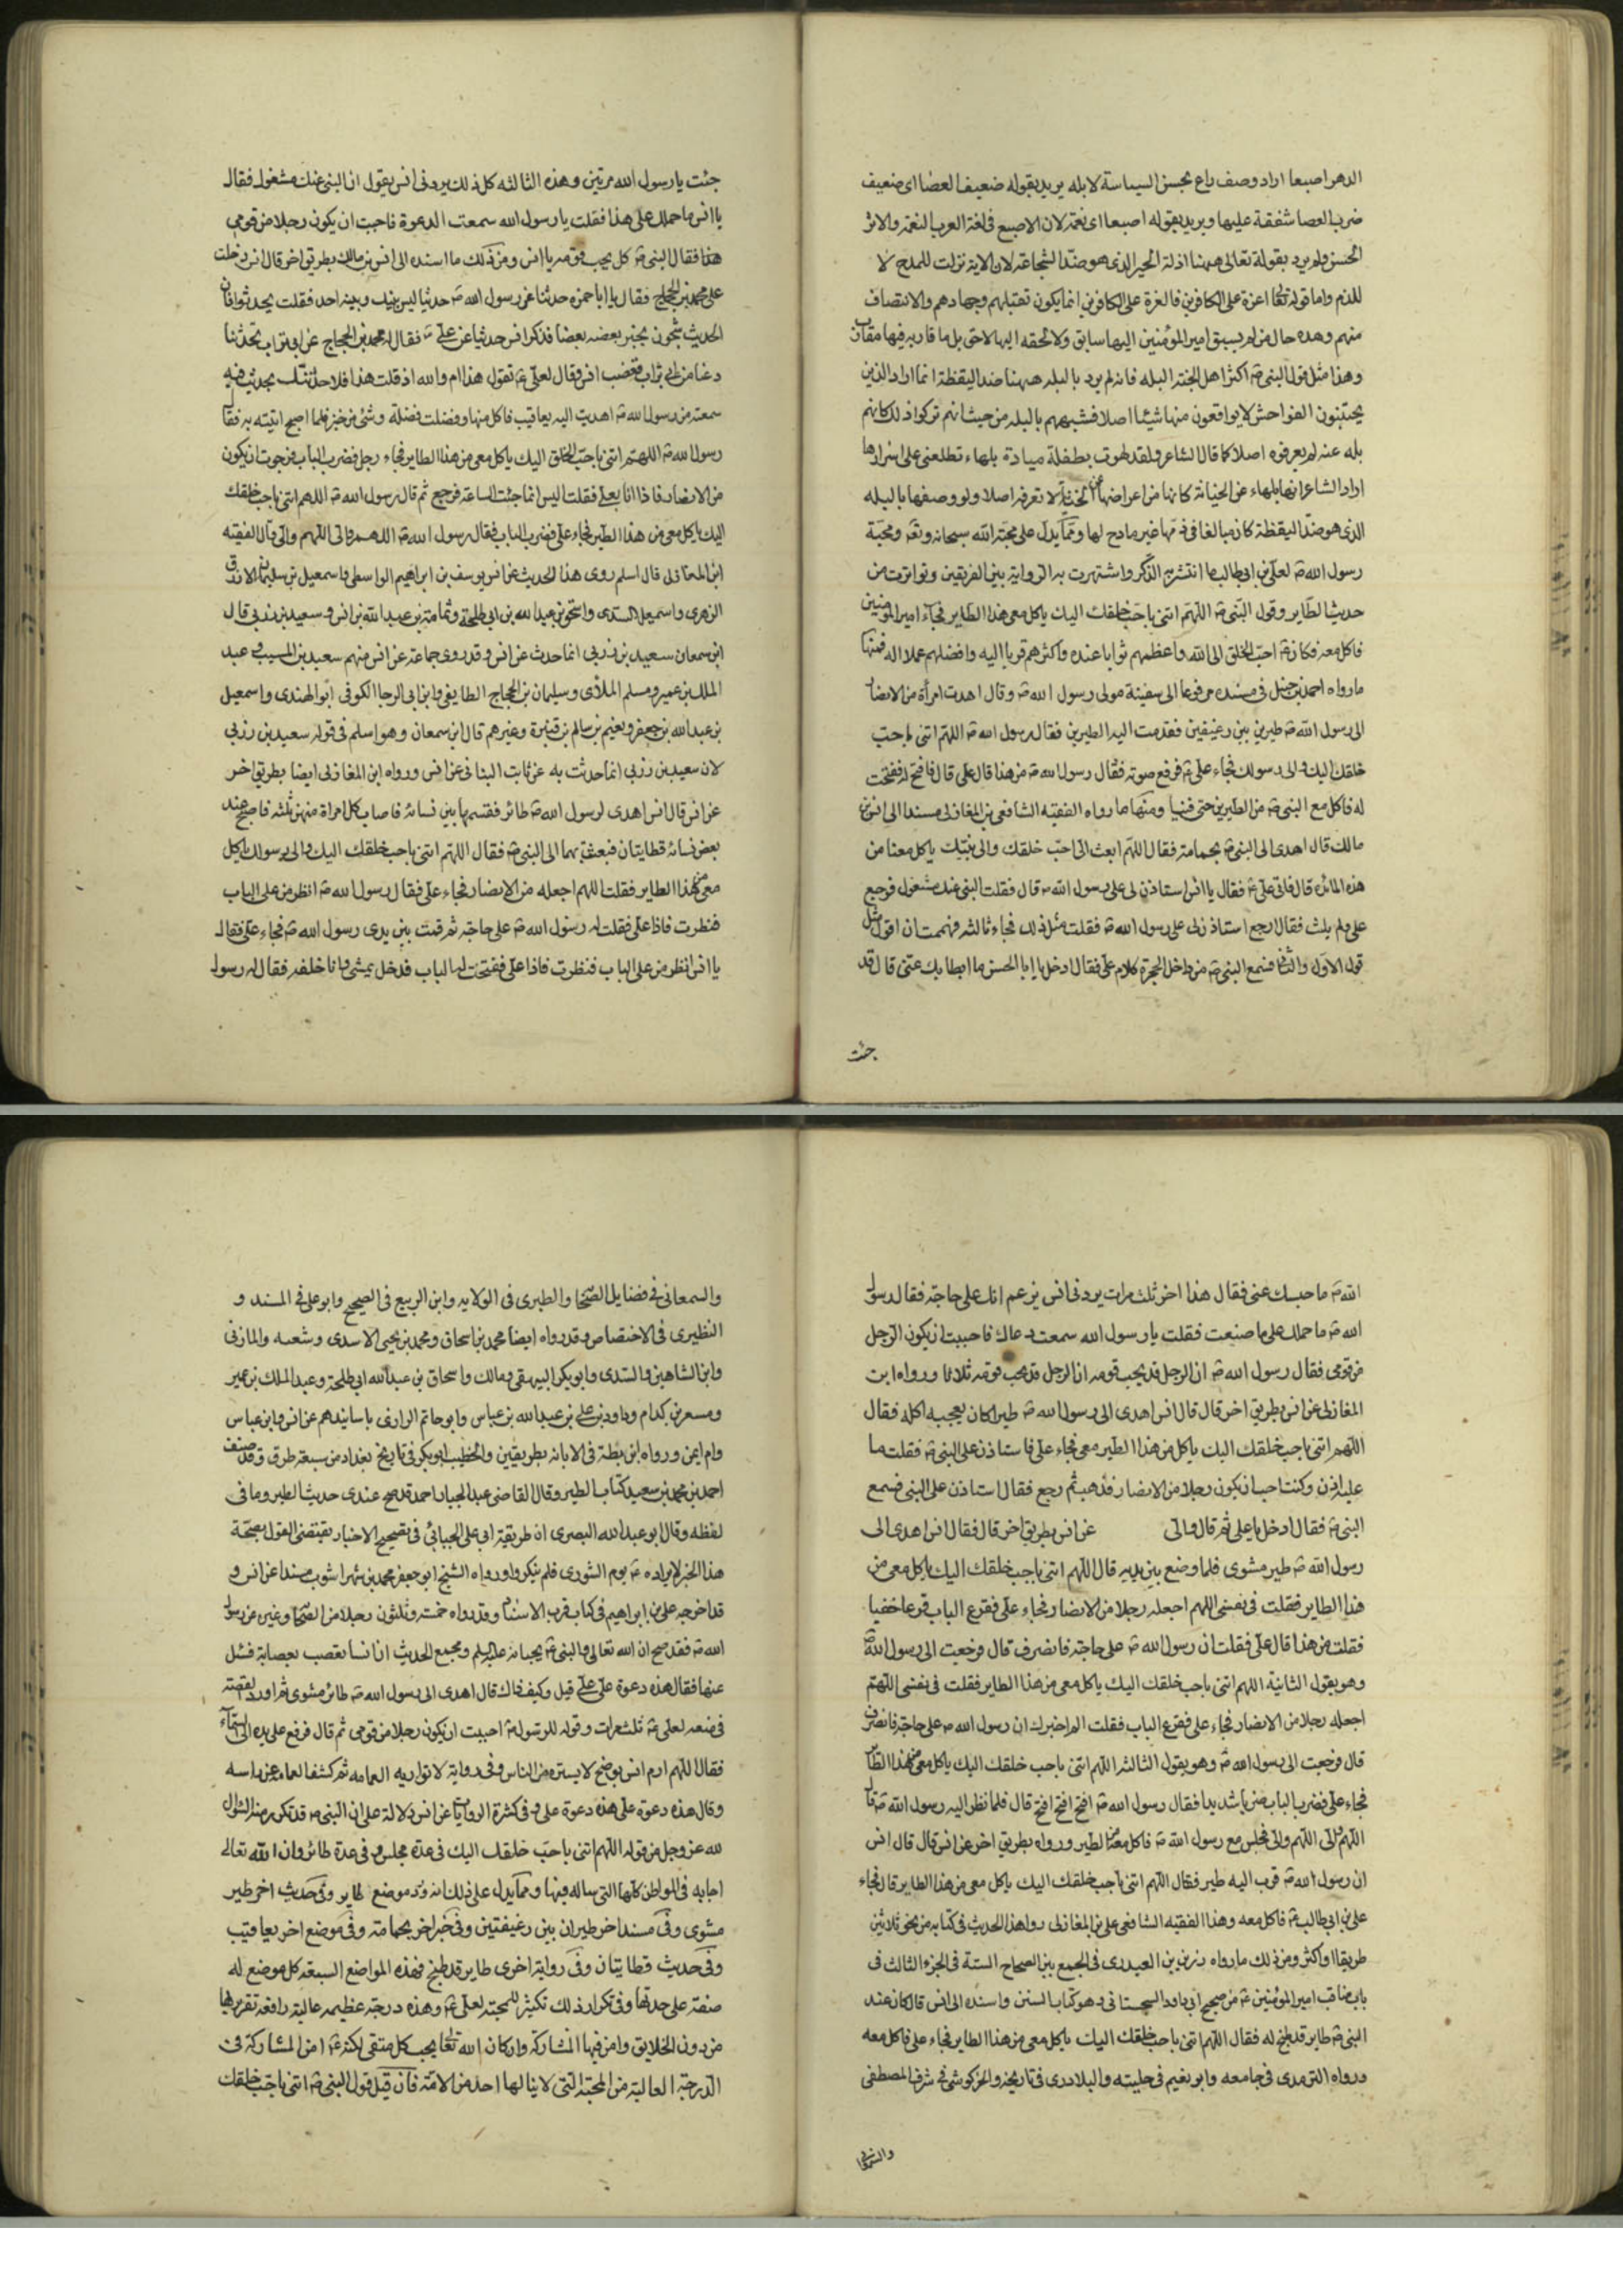 الدهر اصبعا اراد وصف راع بحسن السياسة لابله يريد بقوله ضعيف العصا اى ضعيف
ضرب العصا شفقة عليها ويريد بقوله اصبعا اى نعمة لان الاصبع فى لغة العرب النعمة والاثر
الحسن ولم يرد بقوله تعالى ههنا اذلة الحير الذى هو ضد الشجاعة لان الاية نزلت للمدح لا
للذم واما قوله تعا اعزة على الكافرين فالعزة على الكافرين انما يكون تقتيلهم وجهادهم والانتصاف
منهم وهذه حال من لم يسبق امير المؤمنين اليها سابق ولا لحقه اليها لاحق بل ما قاربه فيها مقارن
وهذا مثل قول النبى ص اكثر اهل الجنة البله فانه لم يرد بالبله ههنا ضد اليقظة انما اراد الذين
يجتنبون الفواحش لا يواقعون منها شيئا اصلا فشبههم بالبله من حيث انهم تركوا ذلك كانهم
بله عنه لم يعرفوه اصلا كما قال الشاعر ولقد لهوت بطفلة ميادة بلهاء تطلعنى على اسرارها
اراد الشاعر انها بلهاء عن الخيانة كانها من اعراضها عن الخيانة لا تعرفه اصلا ولو وصفها بالبله
الذى هو ضد اليقظة كان مبالغا فى ذمها غير مادح لها ومما يدل على محبة الله سبحانه وتع ومحبة
رسول الله ص لعلى بن ابى طالب ما انتشر به الذكر واشتهرت به الرواية بين الفريقين وتواترت من
حديث الطاير وقول النبى ص اللهم ائتنى باحب خلقك اليك ياكل معى هذا الطاير فجاء امير المؤمنين
فاكل معه فكان ع احب الخلق الى الله واعظمهم ثوابا عنده واكثرهم قربا اليه وافضلهم عملا له فمنها
مارواه احمد بن حنبل فى مسنده مرفوعا الى سفينة مولى رسول الله ص وقال اهدت امرأة من الانصار
الى رسول الله ص طيرين بين رغيفين فقدمت اليه الطيرين فقال رسول الله ص اللهم ائتنى باحب
خلقك اليك والى رسولك فجاء على ع فرفع صوته فقال رسول الله ص من هذا قال على قال فافتح له ففتحت
له فاكل مع النبى ص من الطيرين حتى فنيا ومنها ما رواه الفقيه الشافعى بن المغازلى مسندا الى انس بن
مالك قال اهدى الى النبى ص بحمامة فقال اللهم ابعث الى احب خلقك والى نبيك ياكل معنا من
هذه المائدة قال فاتى على ع فقال يا انس استاذن لى على رسول الله ص قال فقلت النبى عنك مشغول فرجع
على ولم يلبث فقال ارجع استاذن لى على رسول الله ص فقلت مثل ذلك فجاء ثالثه فهممت ان اقول مثل
قول الاول والثانى فسمع النبى ص من داخل الحجرة كلام على فقال ادخل يا ابا الحسن ما ابطا بك عنى قال قد
جئت
جئت يا رسول الله مرتين وهذه الثالثه كل ذلك يردنى انس يقول ان النبى عنك مشغول فقال
يا انس ما حملك على هذا فقلت يا رسول الله سمعت الدعوة فاحبت ان يكون رجلا من قومى
هذا فقال النبى ص كل يحب قومه يا انس ومن ذلك ما اسنده الى انس بن مالك بطريق اخر قال انس دخلت
على محمد بن الحجاج فقال يا ابا حمزه حدثنا عن رسول الله ص حديثا ليس بينك وبينه احد فقلت تحدثوا فان
الحديث شجون يجر بعضه بعضا فذكر انس حديثا عن على ع فقال له محمد بن الحجاج عن ابى تراب تحدثنا
دعنا من ابى تراب فغضب انس وقال لعلى ع تقول هذا ام والله اذ قلت هذا فلاحدثنك بحديث فيه
سمعته من رسول الله ص اهديت اليه يعاقيب فاكل منها وفضلت فضلة وشئ من خبز فلما اصبح اتيته به فقا
رسول الله ص اللهم ائتنى باحب الخلق اليك ياكل معى من هذا الطاير فجاء رجل فضرب الباب فرجوت ان يكون
من الانصار فاذا انا بعلى فقلت اليس انما جئت الساعة فرجع ثم قال رسول الله ص اللهم ائتنى باحب خلقك
اليك ياكل معى من هذا الطير فجاء على فضرب الباب فقال رسول الله ص اللهم والى اللهم والى قال الفقيه
ابن المغازلى قال اسلم روى هذا الحديث عن انس يوسف بن ابراهيم الواسطى واسمعيل بن سليمان الازرق
الزهرى واسمعيل السدى واسحق بن عبد الله بن ابى طلحة وثمامة بن عبد الله بن انس وسعيد بن زربى قال
ابن سمعان سعيد بن زربى انما حدث عن انس وقد روى جماعة عن انس منهم سعيد بن المسيب وعبد
الملك بن عمير ومسلم الملأى وسليمان بن الحجاج الطايفى وابن ابى الرجا الكوفى ابو الهندى واسمعيل
بن عبد الله بن جعفر ونعيم بن سالم بن قنبرة وغيرهم قال ابن سمعان وهو اسلم فى قوله سعيد بن زربى
لان سعيد بن زربى انما حدثت به عن ثابت البنانى عن انس ورواه ابن المغازلى ايضا بطريق اخر
عن انس قال انس اهدى لرسول الله ص طائر فقسمها بين نسائه فاصاب كل امراة منهن ثلثه فاصبح عند
بعض نسائه قطايتان فبعثت بهما الى النبى ص فقال اللهم ائتنى باحب خلقك اليك والى رسولك ياكل
معى من هذا الطاير فقلت اللهم اجعله من الانصار فجاء على فقال رسول الله ص انظر من على الباب
فنظرت فاذا على فقلت له رسول الله ص على حاجة ثم قمت بين يدى رسول الله ص فجاء على فقال
يا انس انظر من على الباب فنظرت فاذا على ففتحت له الباب فدخل يمشى وانا خلفه فقال له رسول
الله ص ما حبسك عنى فقال هذا اخر ثلث مرات يردنى انس يزعم انك على حاجة فقال رسول
الله ص ما حملك على ما صنعت فقلت يا رسول الله سمعت دعاك فاحببت ان يكون الرجل
من قومى فقال رسول الله ص ان الرجل قد يحب قومه ان الرجل قد يحب قومه ثلاثا ورواه ابن
المغازلى عن انس بطريق اخر قال قال انس اهدى الى رسول الله ص طير كان يعجبه اكله فقال
اللهم ائتنى باحب خلقك اليك ياكل من هذا الطير معى فجاء على فاستاذن على النبى ص فقلت ما
عليه اذن وكنت احب ان يكون رجلا من الانصار فذهب ثم رجع فقال استاذن على النبى فسمع
النبى ص فقال ادخل يا على ثم قال والى عن انس بطريق اخر قال فقال انس اهدى الى
رسول الله ص طير مشوى فلما وضع بين يديه قال اللهم ائتنى باحب خلقك اليك ياكل معى من
هذا الطاير فقلت فى نفسى اللهم اجعله رجلا من الانصار فجاء على فقرع الباب قرعا خفيا
فقلت من هذا قال على فقلت ان رسول الله ص على حاجة فانصرف قال فرجعت الى رسول الله ص
وهو يقول الثانية اللهم ائتنى باحب خلقك اليك ياكل معى من هذا الطاير فقلت فى نفسى اللهم
اجعله رجلا من الانصار فجاء على فقرع الباب فقلت الم اخبرك ان رسول الله ص على حاجة فانصرف
قال فرجعت الى رسول الله ص وهو يقول الثالثة اللهم ائتنى باحب خلقك اليك ياكل معى من هذا الطاير
فجاء على فضرب الباب ضربا شديدا فقال رسول الله ص افتح افتح افتح قال فلما نظر اليه رسول الله ص قال
اللهم والى اللهم والى فجلس مع رسول الله ص فاكل معه من الطير ورواه بطريق اخر عن انس قال قال انس
ان رسول الله ص قرب اليه طير فقال اللهم ائتنى باحب خلقك اليك ياكل معى من هذا الطاير قال فجاء
على بن ابى طالب ع فاكل معه وهذا الفقيه الشافعى على بن المغازلى روا هذا الحديث فى كتابه من نحو ثلاثين
طريقا او اكثر ومن ذلك مارواه رزين بن العبدرى فى الجمع بين الصحاح الستة فى الجزء الثالث فى
باب مناقب امير المؤمنين ع من صحيح ابى داود السجستانى وهو كتاب السنن واسنده الى انس قال كان عند
النبى ص طاير قد طبخ له فقال اللهم ائتنى باحب خلقك اليك ياكل معى من هذا الطاير فجاء على فاكل معه
ورواه الترمدى فى جامعه وابو نعيم فى حليته والبلادرى فى تاريخه والخركوشى فى شرف المصطفى
والسمعانى
والسمعانى فى فضايل الصحا والطبرى فى الولاية وابن الربيع فى الصحيح وابو على فى المسند و
النطيرى فى الاختصاص وقد رواه ايضا محمد بن اسحاق ومحمد بن يحيى الاسدى وشعبه والمازنى
وابن الشاهين والسدى وابو بكر البيهقى ومالك واسحاق بن عبد الله ابى طلحة وعبد الملك بن عمير
ومسعر بن كدام وداود بن على بن عبد الله بن عباس وابو حاتم الرازى باسانيدهم عن انس وابن عباس
وام ايمن ورواه ابن بطة فى الابانه بطريقين والخطيب ابو بكر فى تاريخ بغداد من سبعة طرق وقد صنف
احمد بن محمد بن سعيد كتاب الطير وقال القاضى عبد الجبار احمد قد صح عندى حديث الطير وما فى
لفظه وقال ابو عبد الله البصرى ان طريقة ابى على الجبائى فى تصحيح الاخبار يقتضى القول بصحة
هذا الخبر لايراده ع يوم الشورى فلم ينكر ولو رواه الشيخ ابو جعفر محمد بن شهراشوب مسندا عن انس و
قد اخرجه على بن ابراهيم فى كتاب قرب الاسناد وقد رواه خمسة وثلثون رجلا من الصحا وغيره عن رسول
الله ص فقد صح ان الله تعالى والنبى ص يحبانه عليه السلم ومجمع الحديث ان انسا تعصب بعصابة فسئل
عنها فقال هذه دعوة على على قيل وكيف ذاك قال اهدى الى رسول الله ص طائر مشوى ثم اورد القصة
فى منعه لعلى ع ثلث مرات وقوله للرسول ص احببت ان يكون رجلا من قومى ثم قال فرفع على يده الى السماء
فقال اللهم ارم انس بوضح لا يستره من الناس وفى رواية لا تواريه العمامه ثم كشف العمامه عن راسه
وقال هذه دعوة على هذه دعوة على وفى كثرة الروايات عن انس دلالة على ان النبى ص قد تكرر منه السئوال
لله عز وجل من قوله اللهم ائتنى باحب خلقك اليك فى عدة مجلس وفى عدة طائر وان الله تعالى
اجابه فى المواطن كلها التى ساله فيها ومما يدل على ذلك انه ورد موضع طاير وفى حديث اخر طير
مشوى وفى مسند اخر طيران بين رغيفتين وفى خبر اخر بحمامة وفى موضع اخر يعاقيب
وفى حديث قطايتان وفى رواية اخرى طاير قد طبخ فهذه المواضع السبعة كل موضع له
صفة على حدتها وفى تكرار ذلك تكثير للمحبة لعلى ع وهذه درجة عظيمه عالية رافعة تقريرها
من دون الخلايق وامن فيها المشاركة وان كان الله تعا يحب كل متقى لكنه ع امن المشاركة فى
الدرجة العالية من المحبة التى لا ينالها احد من الامة فان قيل قول النبى ص ائتنى باحب خلقك